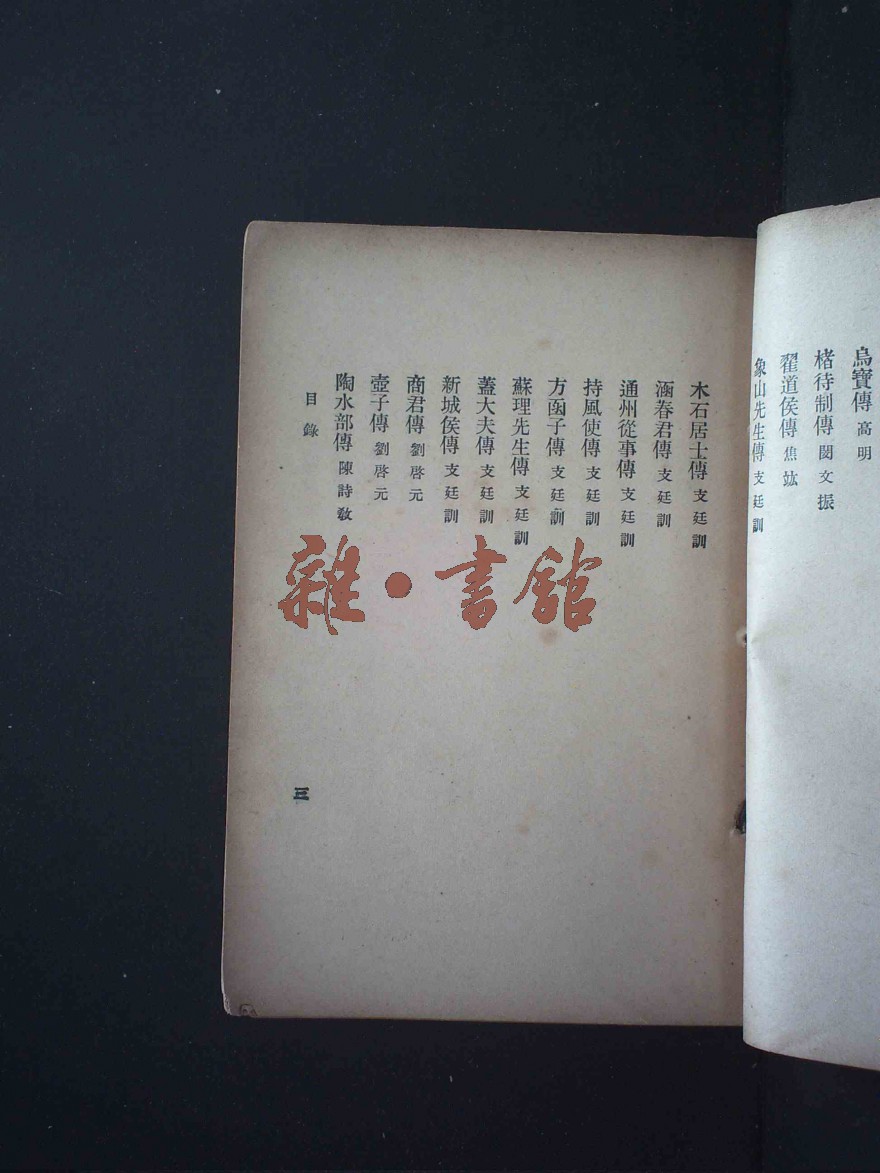 烏寶傳 高明
楮待制傳 閔文振
翟道侯傳 焦竑
象山先生傳 支廷訓
木石居士傳 支廷訓
涵春君傳 支廷訓
通州從事傳 支廷訓
持風使傳 支廷訓
方函子傳 支廷訓
蘇理先生傳 支廷訓
蓋大夫傳 支廷訓
新城侯傳 支廷訓
商君傳 劉啓元
壺子傳 劉啓元
陶水部傳 陳詩教
目錄
三
雜·書館